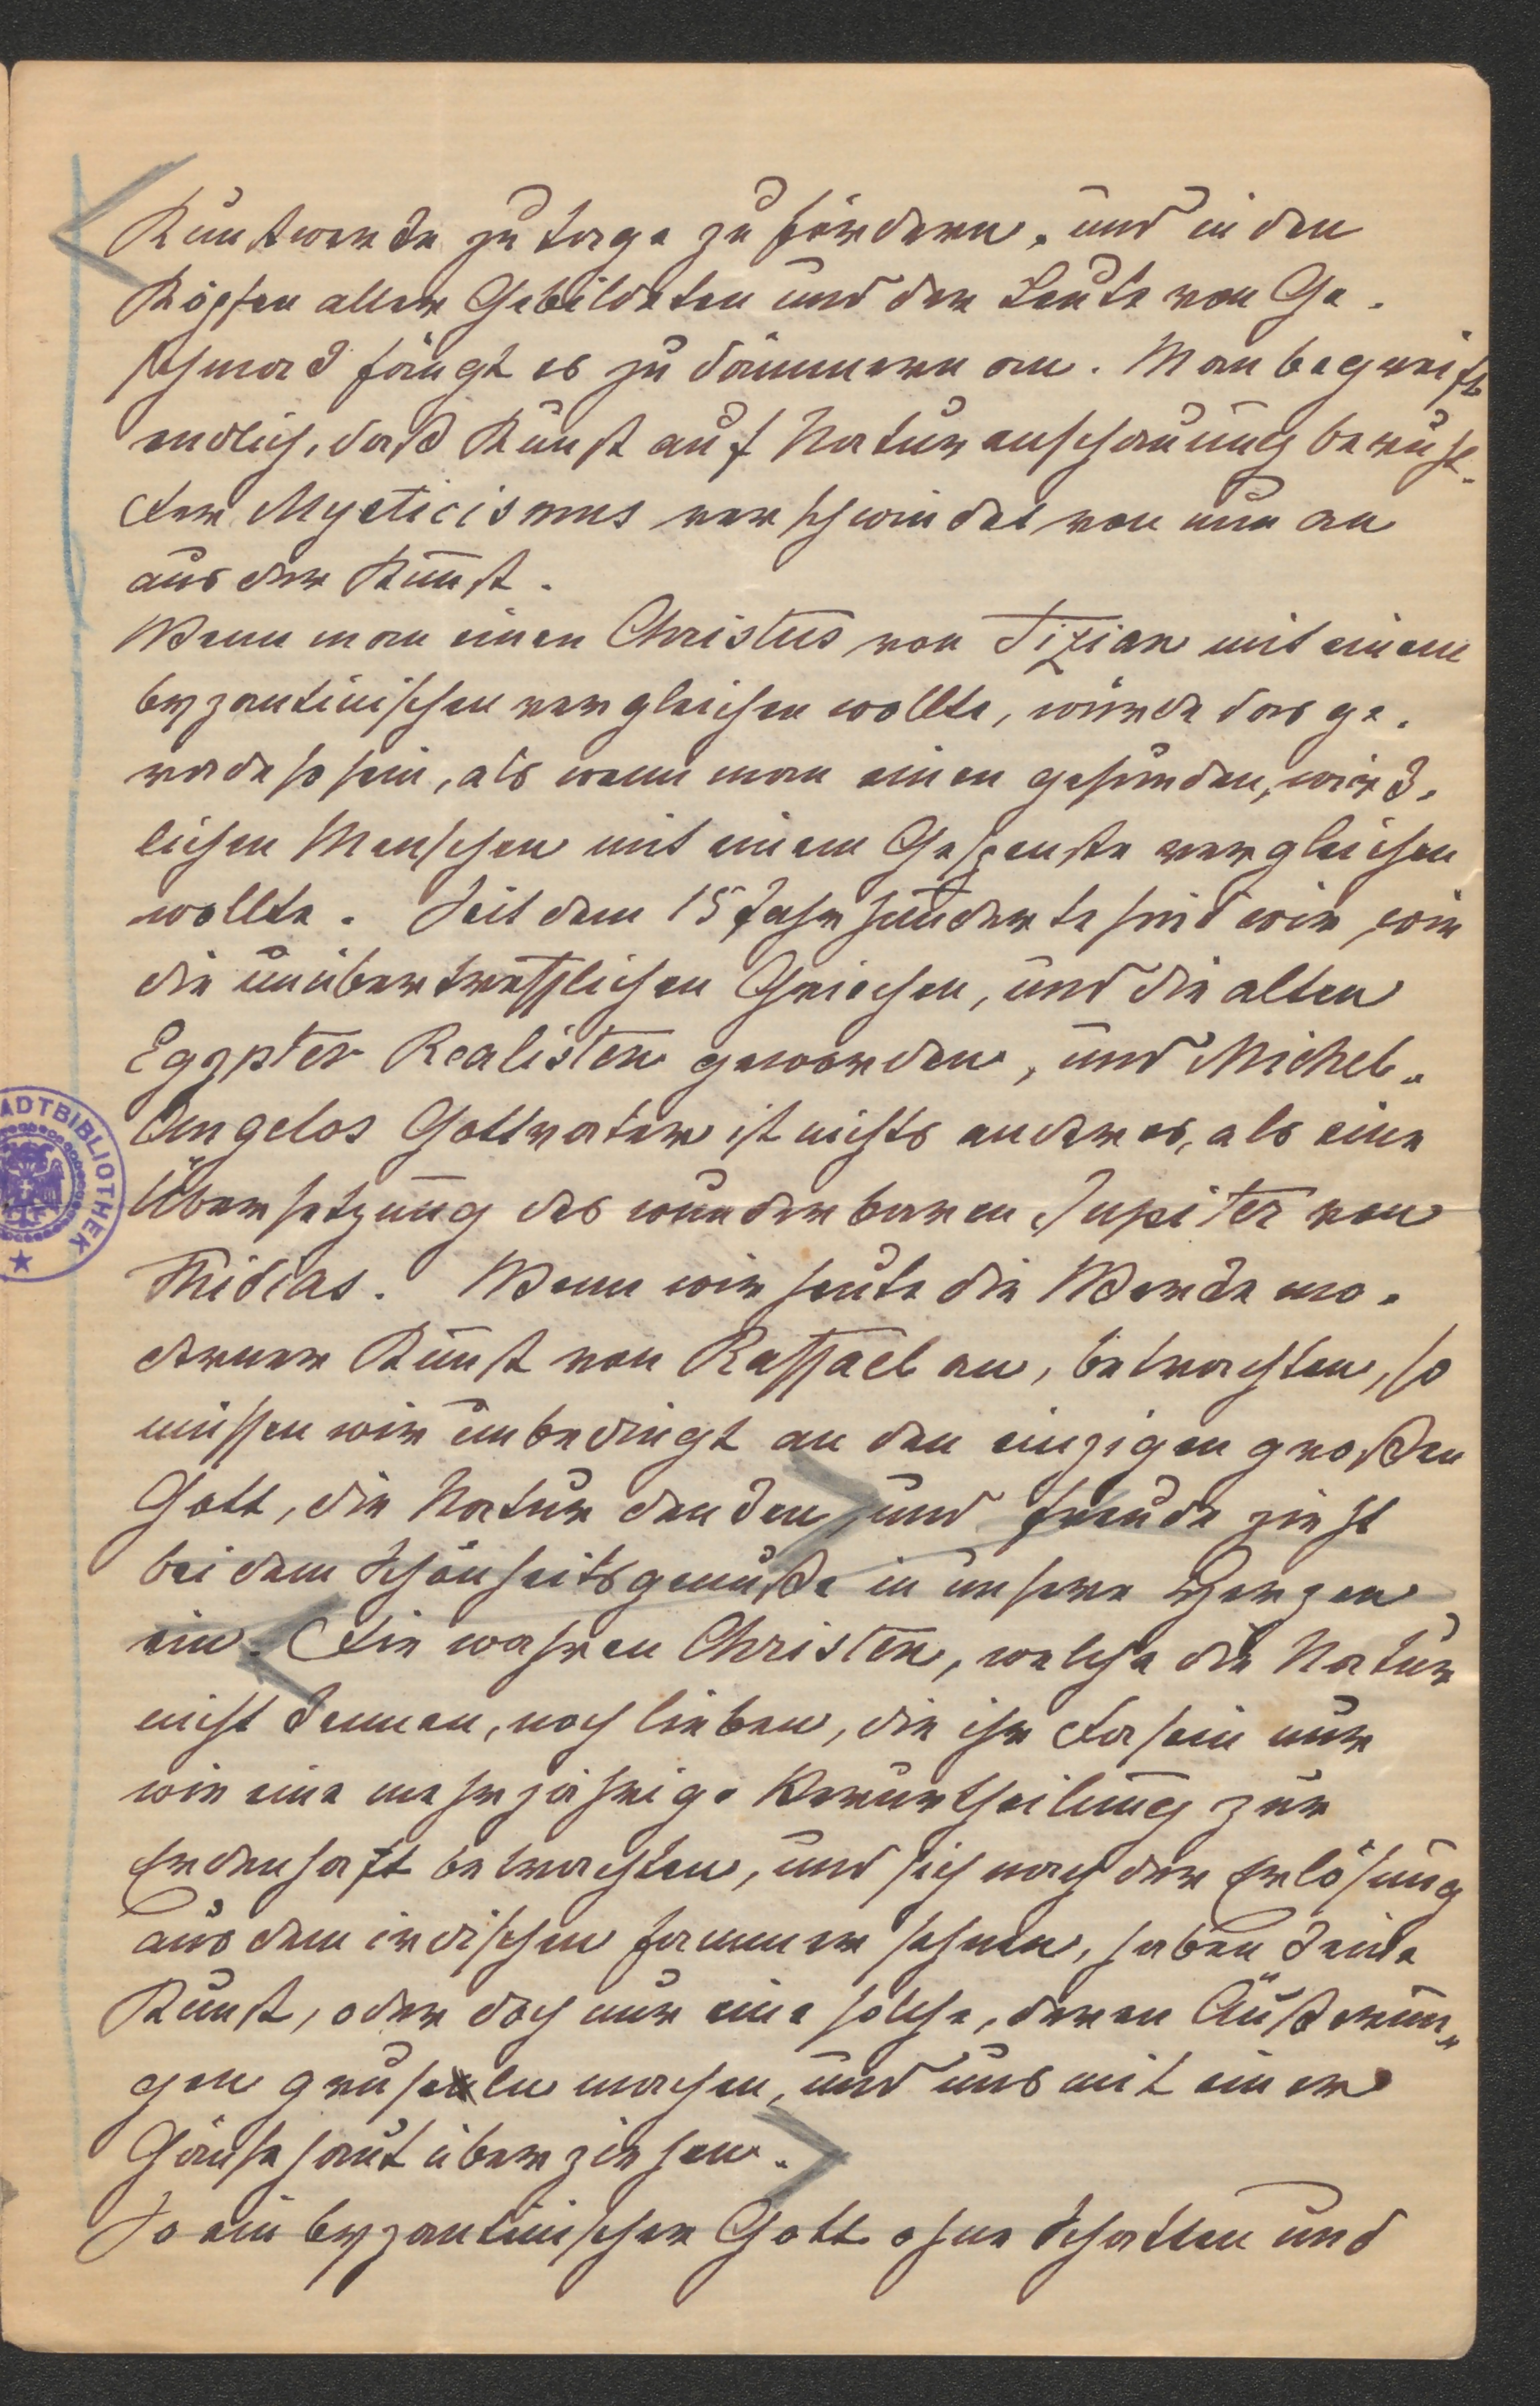 Kunstwerke zu tage zu fördern, und in den
Köpfen aller Gebildeten und der Leute von Ge-
schmack fängt es zu dämmern an. Man begreift
endlich, daß Kunst auf Naturanschauung beruht.
Der Mysticismus verschwindet von nun an
aus der Kunst.
Wenn man einen Christus von Tizian mit einem
byzantinischen vergleichen wollte, würde das ge-
rade so sein, als wenn man einen gesunden, wirk-
lichen Menschen mit einem Gespenste vergleichen
wollte. Seit dem 15 Jahrhunderte sind wir, wie
die unübertrefflichen Griechen, und die alten
Egypter Realisten geworden, und Michel-
Angelos Gottvater ist nichts anderes, als eine
Übersetzung des wunderbaren Jupiter von
Fhidias. Wenn wir heute die Werke mo-
derner Kunst von Raffael an, betrachten, so
müssen wir unbedingt an den einzigen großen
Gott, die Natur denken, und Freude zieht
bei dem Schönheitsgenuße in unsere Herzen
ein. Die wahren Christen, welche die Natur
nicht kennen, noch lieben, die ihr Dasein nur
wie eine mehrjährige Verurtheilung zur
Erdenhaft betrachten, und sich nach der Erlösung
aus dem irdischen Jammer sehnen, haben keine
Kunst, oder doch nur eine solche, deren Äußerun-
gen gruseln machen, und uns mit einer
Gänsehaut überziehen.
So ein byzantinischer Gott ohne Schatten und
ADTBIBLIOTHEK